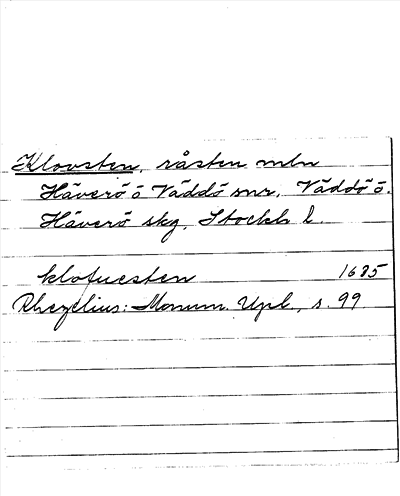 Klovsten, råsten mln
Häverö o Väddö snr, Väddö o.
Häverö skg, Stockh l.
klofuesten 1685
Rhezelius: Monum. Upl., s. 99